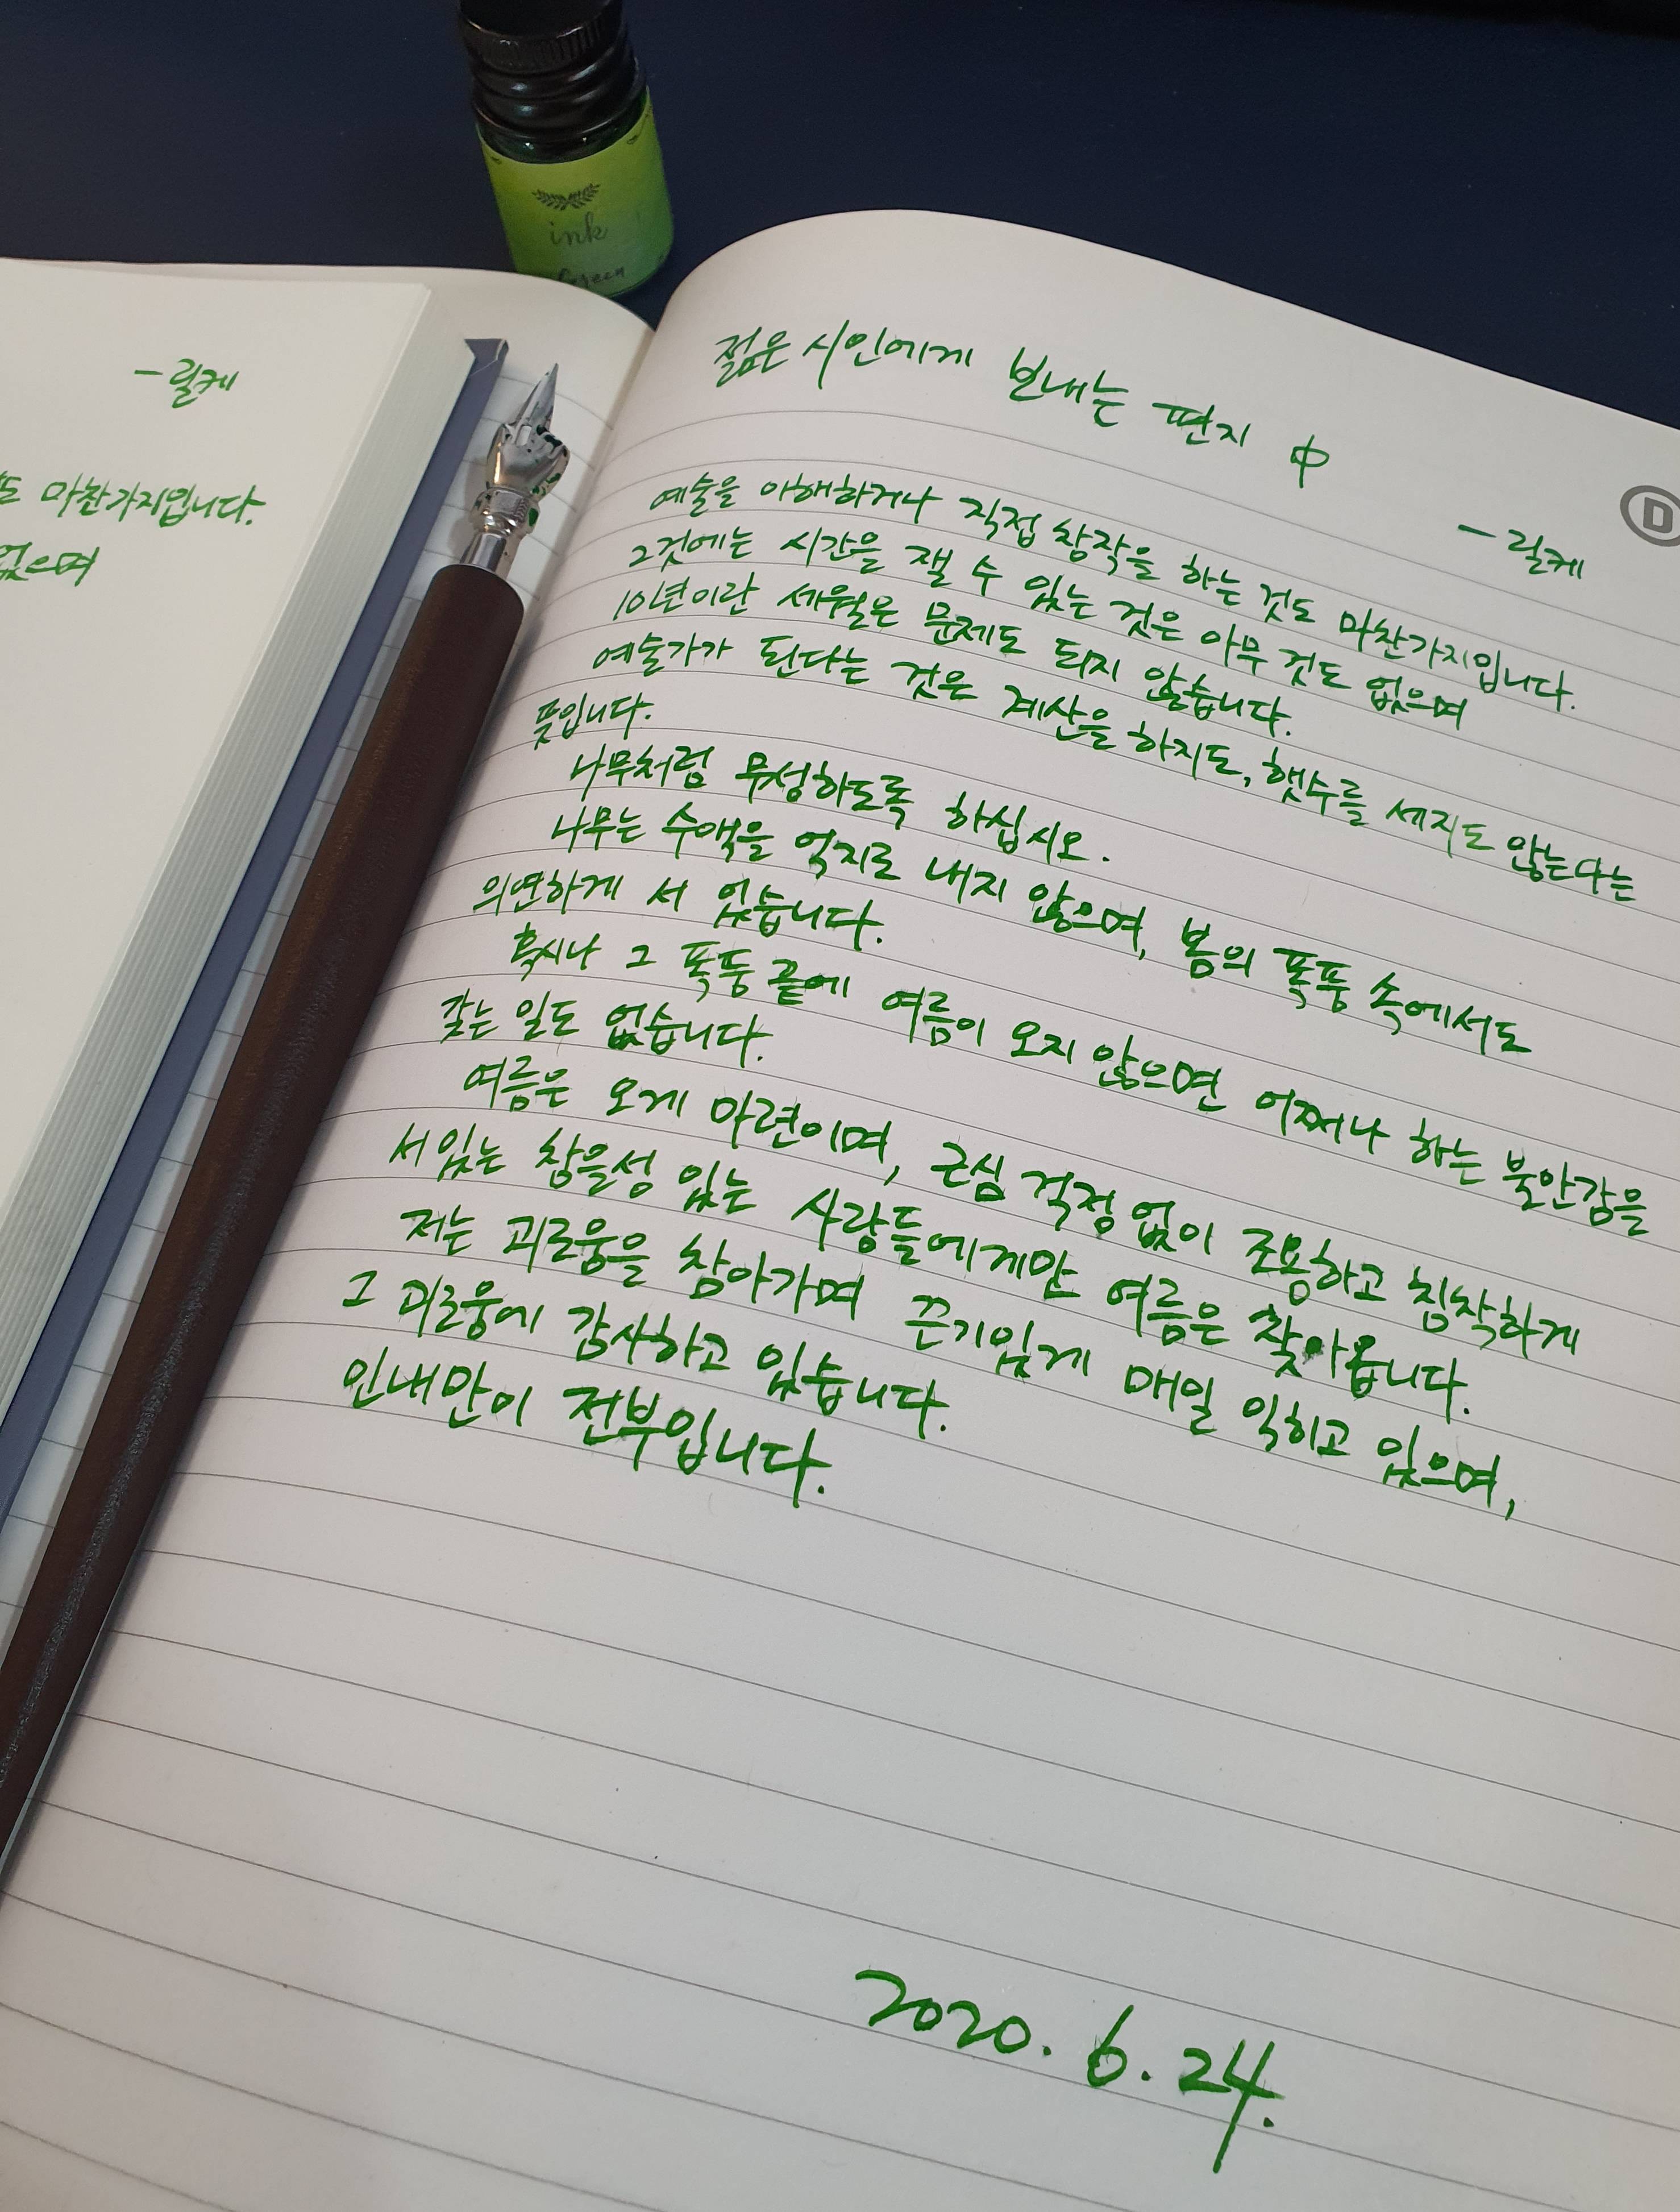 ink
Green
- 릴케
도 마찬가지입니다.
없으며
젊은 시인에게 보내는 편지 中
D
- 릴케
예술을 이해하거나 직접 창작을 하는 것도 마찬가지입니다.
그것에는 시간을 잴 수 있는 것은 아무 것도 없으며
10년이란 세월은 문제도 되지 않습니다.
예술가가 된다는 것은 계산을 하지도, 햇수를 세지도 않는다는
뜻입니다.
나무처럼 무성하도록 하십시오.
나무는 수액을 억지로 내지 않으며, 봄의 폭풍 속에서도
의연하게 서 있습니다.
혹시나 그 폭풍 끝에 여름이 오지 않으면 어쩌나 하는 불안감을
갖는 일도 없습니다.
여름은 오게 마련이며, 근심 걱정 없이 조용하고 침착하게
서 있는 참을성 있는 사람들에게만 여름은 찾아옵니다.
저는 괴로움을 참아가며 끈기있게 매일 익히고 있으며,
그 괴로움에 감사하고 있습니다.
인내만이 전부입니다.
2020. 6. 24.